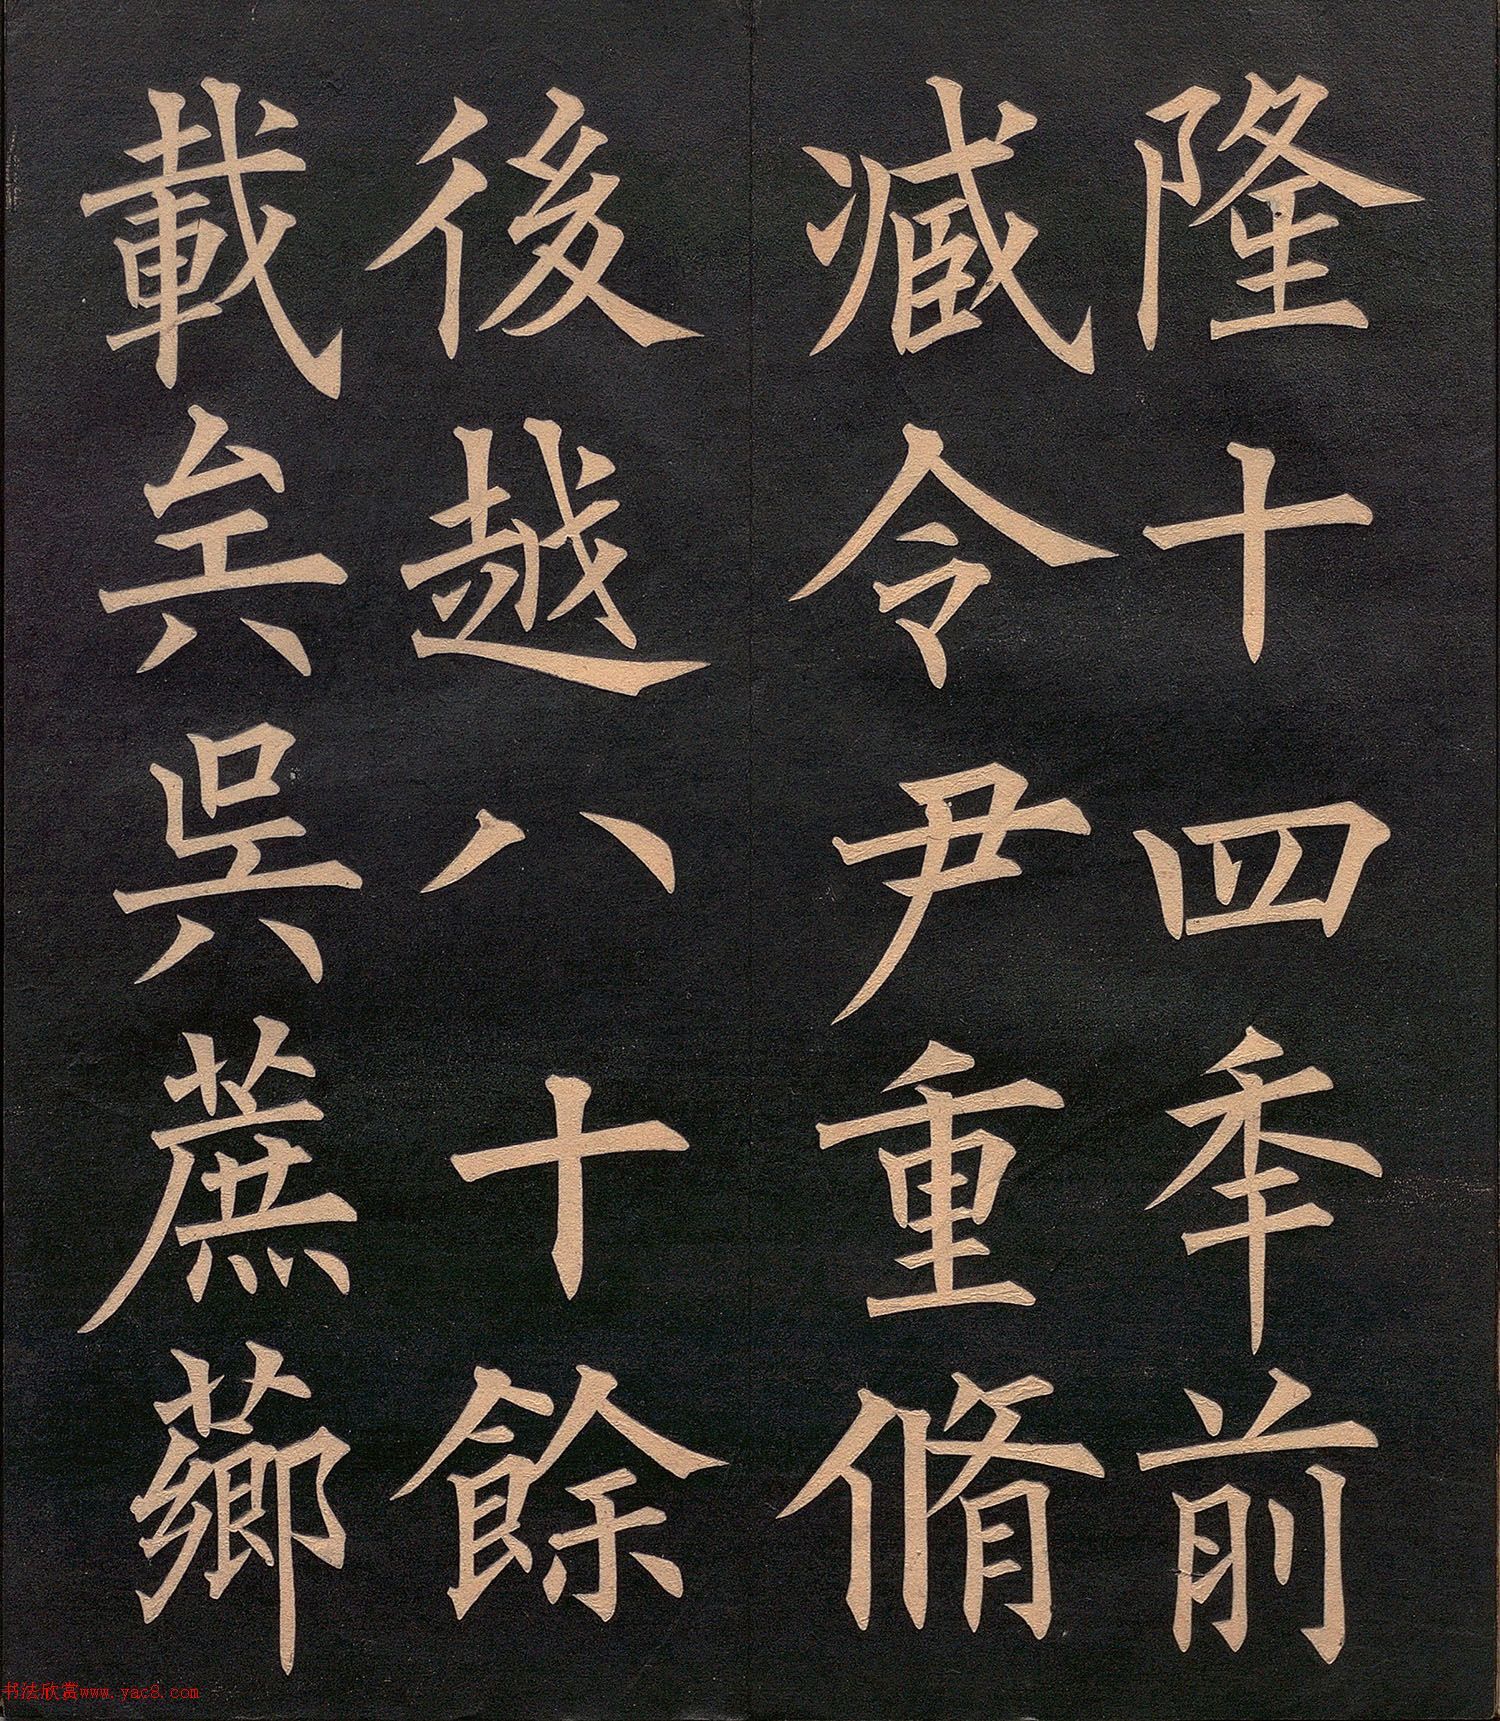 隆十四秊前
臧令尹重脩
後越八十餘
載矣吳蔗薌
书法欣赏www.yac8.com